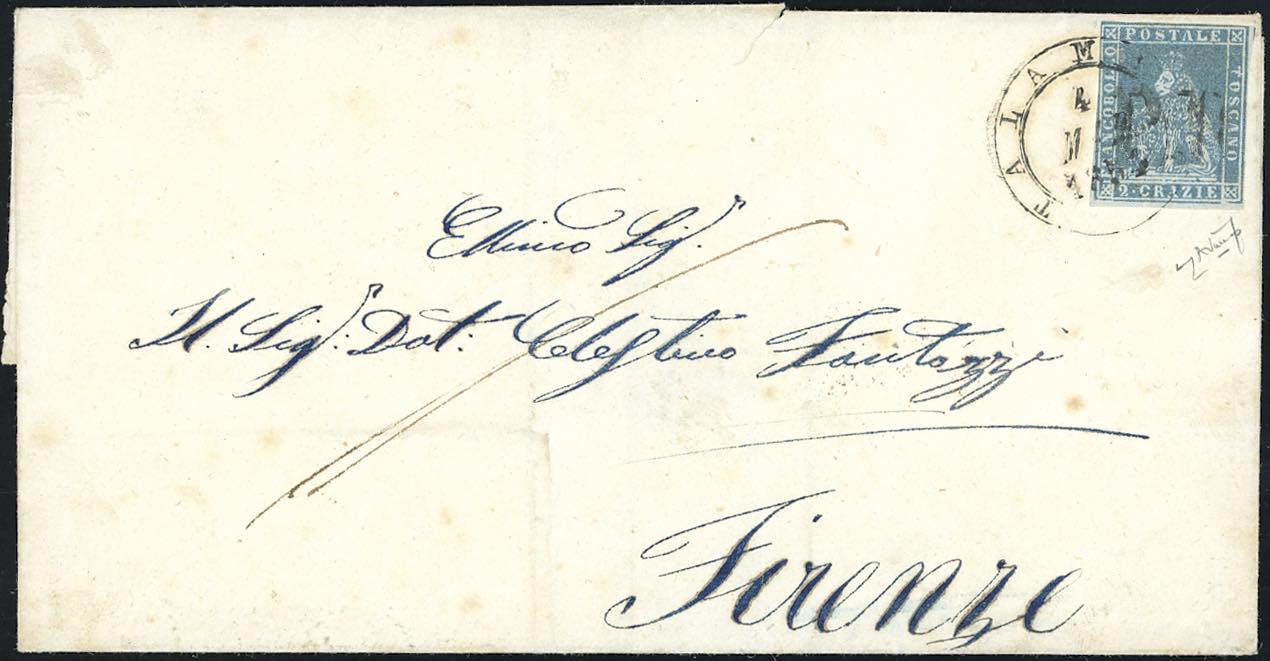 POSTALE
FRANCOBOLLO
TOSCANO
2·CRAZIE
TALAM
4
Ill.mo Sig.r
Il Sig.r Dot.: Celestino Fantozzi
Firenze